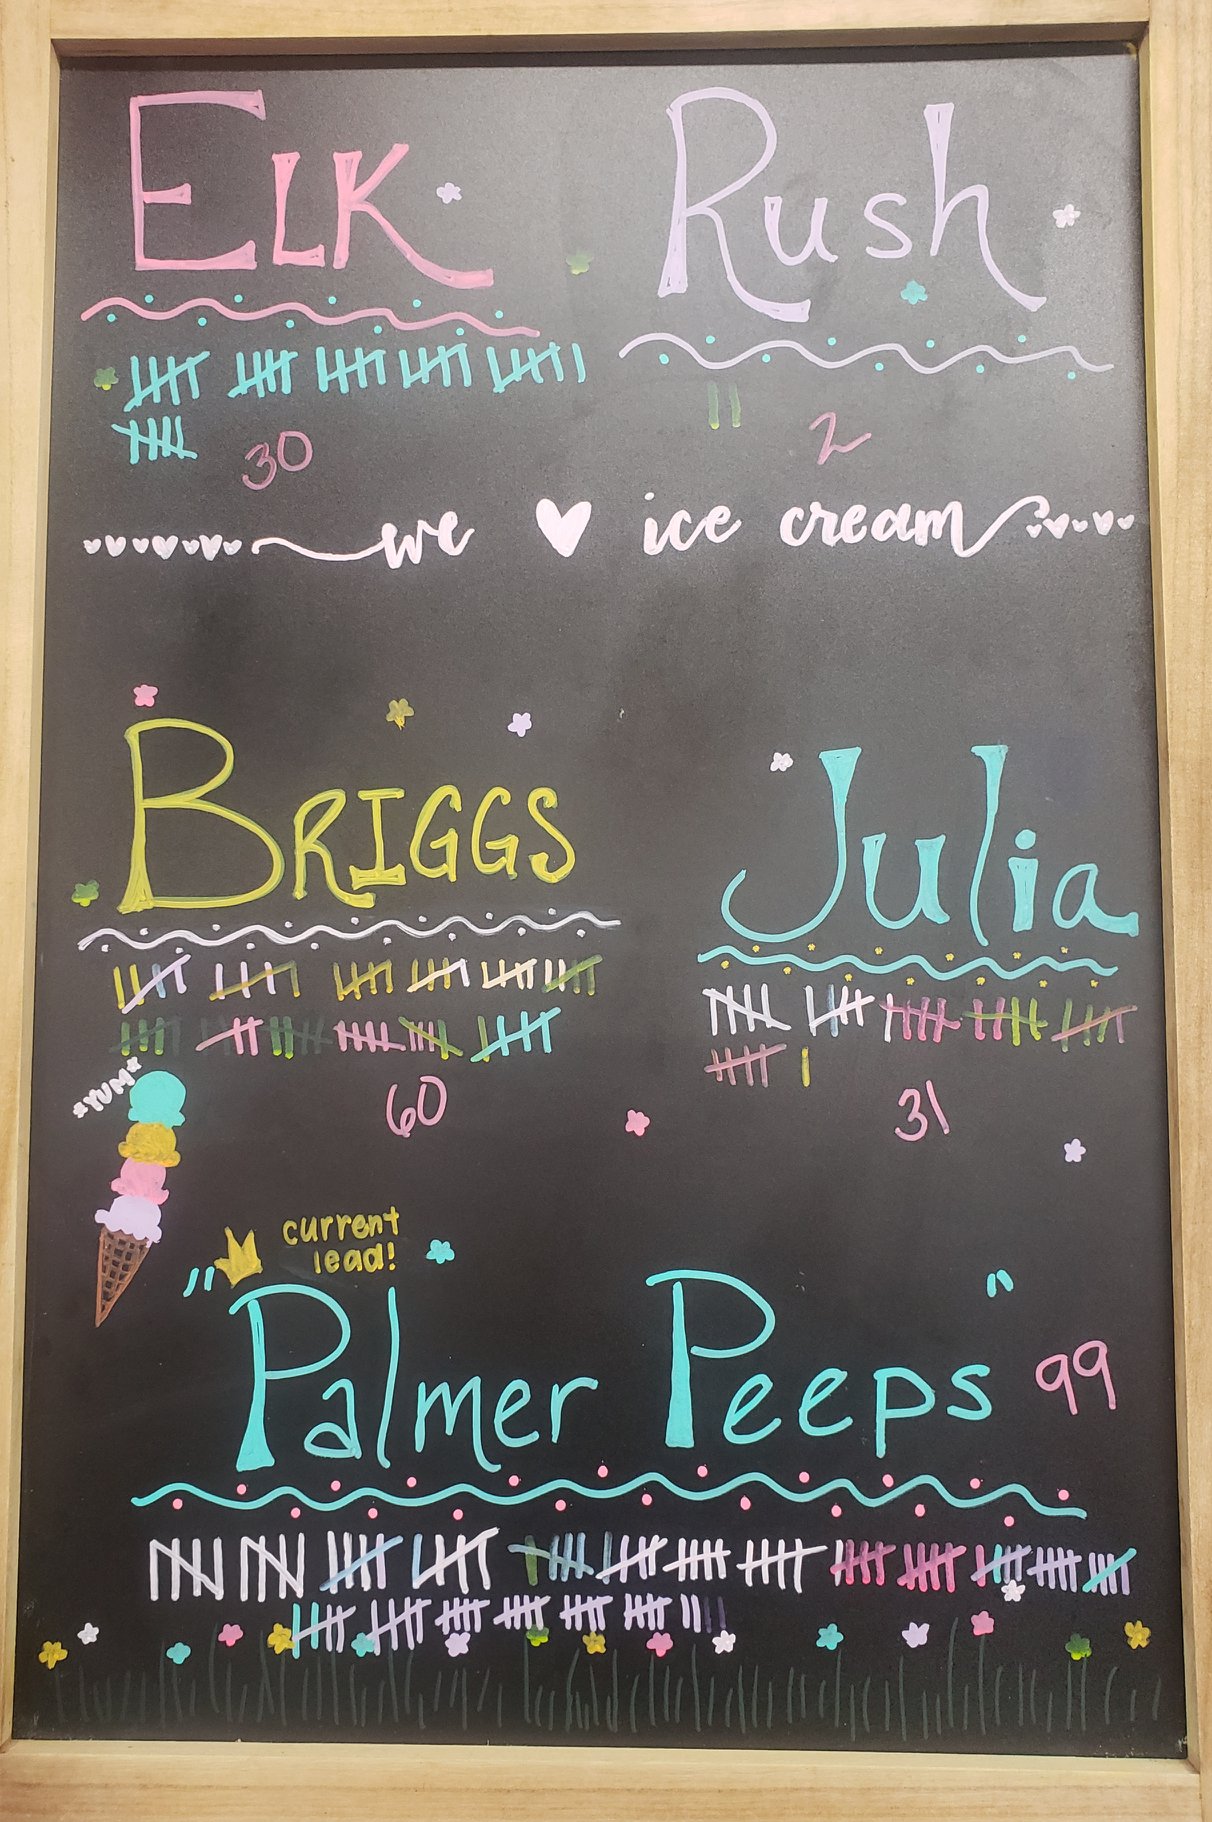 ELK
Rush
30
2
we ice cream
BRIGGS
Julia
60
31
*YUM*
current
lead!
"Palmer Peeps" 99